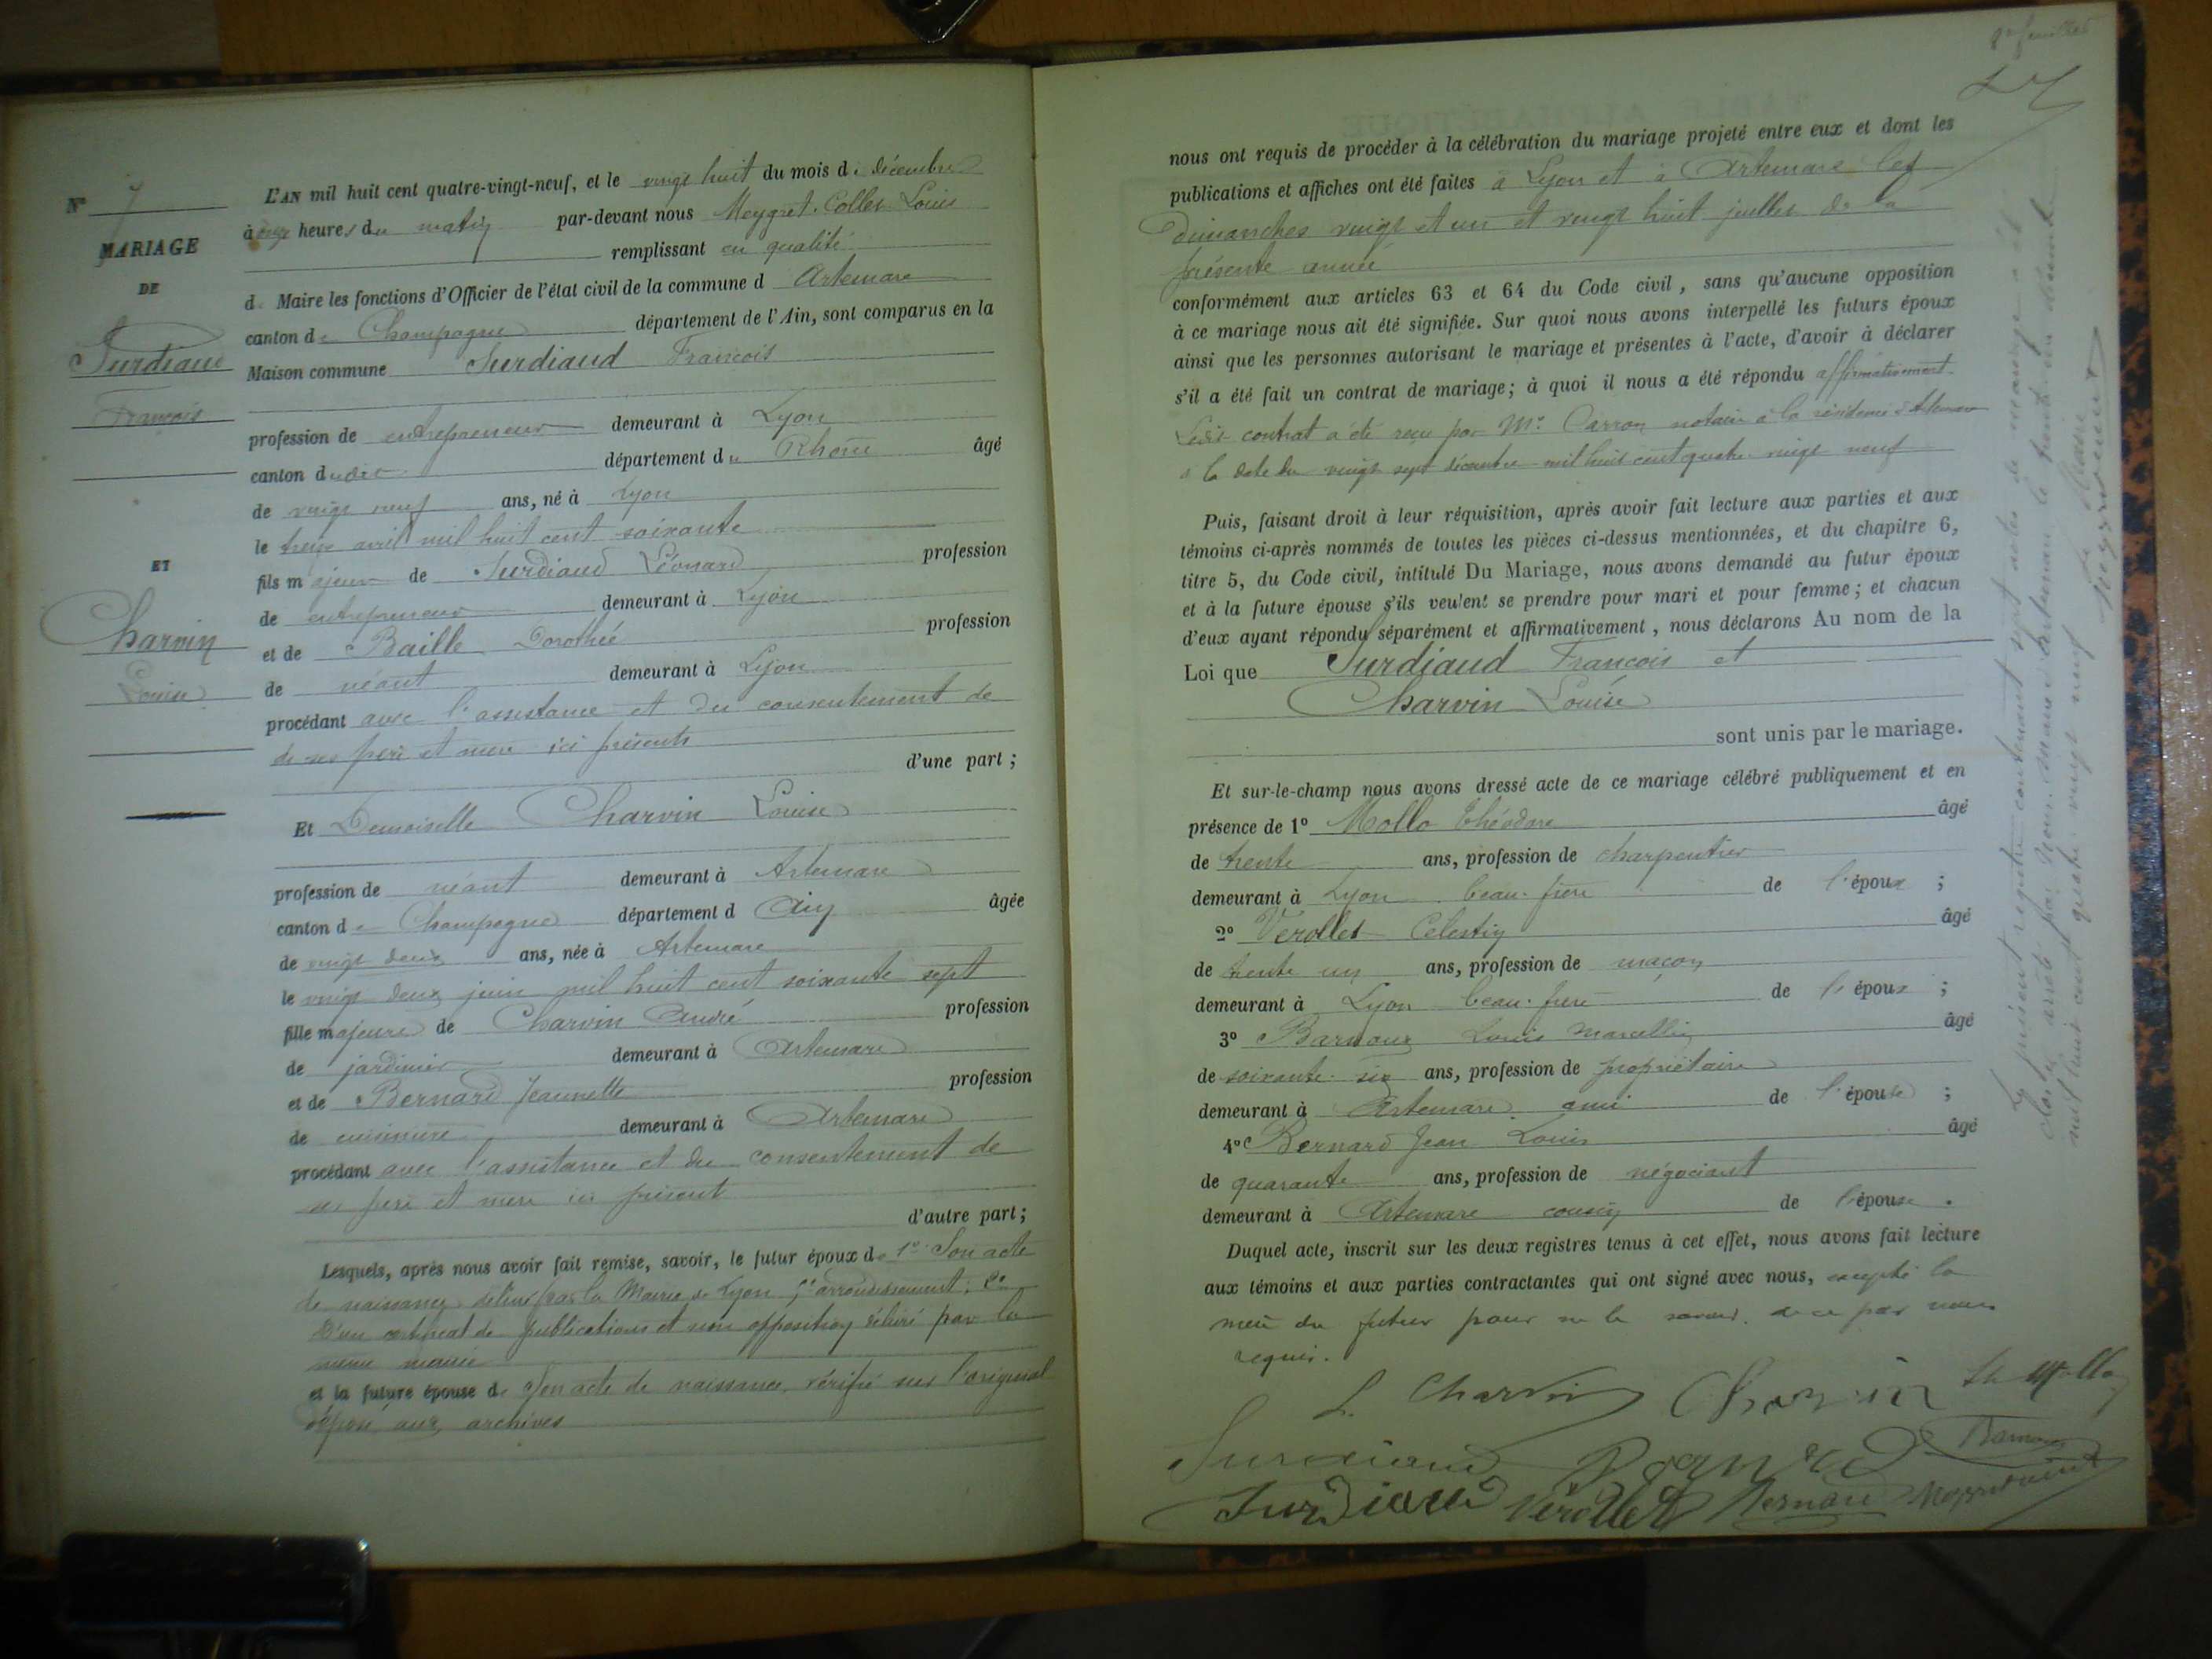 Nº 7
MARIAGE
DE
Surdiaud
François
ET
Charvin
Louise
L'AN mil huit cent quatre-vingt-neuf, et le vingt huit du mois de décembre
à onze heures du matin par-devant nous Meygret-Collet Louis
remplissant en qualité
de Maire les fonctions d'Officier de l'état civil de la commune d Artemare
canton de Champagne département de l'Ain, sont comparus en la
Maison commune Surdiaud François
profession de entrepreneur demeurant à Lyon
canton dudit département du Rhône âgé
de vingt neuf ans, né à Lyon
le treize avril mil huit cent soixante
fils majeur de Surdiaud Léonard profession
de entrepreneur demeurant à Lyon
et de Baille Dorothée profession
de néant demeurant à Lyon
procédant avec l'assistance et du consentement de
de ses père et mère ici présents
d'une part ;
Et Demoiselle Charvin Louise
profession de néant demeurant à Artemare
canton de Champagne département d Ain âgée
de vingt deux ans, née à Artemare
le vingt deux juin mil huit cent soixante sept
fille majeure de Charvin André profession
de jardinier demeurant à Artemare
et de Bernard Jeannette profession
de cuisinière demeurant à Artemare
procédant avec l'assistance et du consentement de
ses père et mère ici présent
d'autre part ;
Lesquels, après nous avoir fait remise, savoir, le futur époux de 1º Son acte
de naissance délivré par la Mairie de Lyon arrondissement ; 2º
D'un certificat de publications et non opposition délivré par la
même mairie
et la future épouse de son acte de naissance vérifié sur l'original
déposé aux archives
nous ont requis de procéder à la célébration du mariage projeté entre eux et dont les
publications et affiches ont été faites à Lyon et à Artemare les
dimanches vingt et un et vingt huit juillet de la
présente année
conformément aux articles 63 et 64 du Code civil, sans qu'aucune opposition
à ce mariage nous ait été signifiée. Sur quoi nous avons interpellé les futurs époux
ainsi que les personnes autorisant le mariage et présentes à l'acte, d'avoir à déclarer
s'il a été fait un contrat de mariage ; à quoi il nous a été répondu affirmativement.
Ledit contrat a été reçu par Me Carron notaire à la résidence d'Artemare
à la date du vingt sept décembre mil huit cent quatre vingt neuf
Puis, faisant droit à leur réquisition, après avoir fait lecture aux parties et aux
témoins ci-après nommés de toutes les pièces ci-dessus mentionnées, et du chapitre 6,
titre 5, du Code civil, intitulé Du Mariage, nous avons demandé au futur époux
et à la future épouse s'ils veulent se prendre pour mari et pour femme ; et chacun
d'eux ayant répondu séparément et affirmativement, nous déclarons Au nom de la
Loi que Surdiaud François et
Charvin Louise
sont unis par le mariage.
Et sur-le-champ nous avons dressé acte de ce mariage célébré publiquement et en
présence de 1º Mollo Théodore âgé
de trente ans, profession de charpentier
demeurant à Lyon beau-frère de l'époux ;
2º Verollet Célestin âgé
de trente un ans, profession de maçon
demeurant à Lyon beau-frère de l'époux ;
3º Barnoux Louis Marcellin âgé
de soixante six ans, profession de propriétaire
demeurant à Artemare ami de l'épouse ;
4º Bernard Jean Louis âgé
de quarante ans, profession de négociant
demeurant à Artemare cousin de l'épouse.
Duquel acte, inscrit sur les deux registres tenus à cet effet, nous avons fait lecture
aux témoins et aux parties contractantes qui ont signé avec nous, excepté la
mère du futur pour ne le savoir. de ce par nous
requis.
L. Charvin Charvin Th Mollo
Surdiaud Bernard Barnoux
Surdiaud Verollet Bernard
Le présent registre contenant sept actes de mariage a été
clos et arrêté par Nous, Maire d'Artemare le trente un décembre
mil huit cent quatre vingt neuf
Le Maire